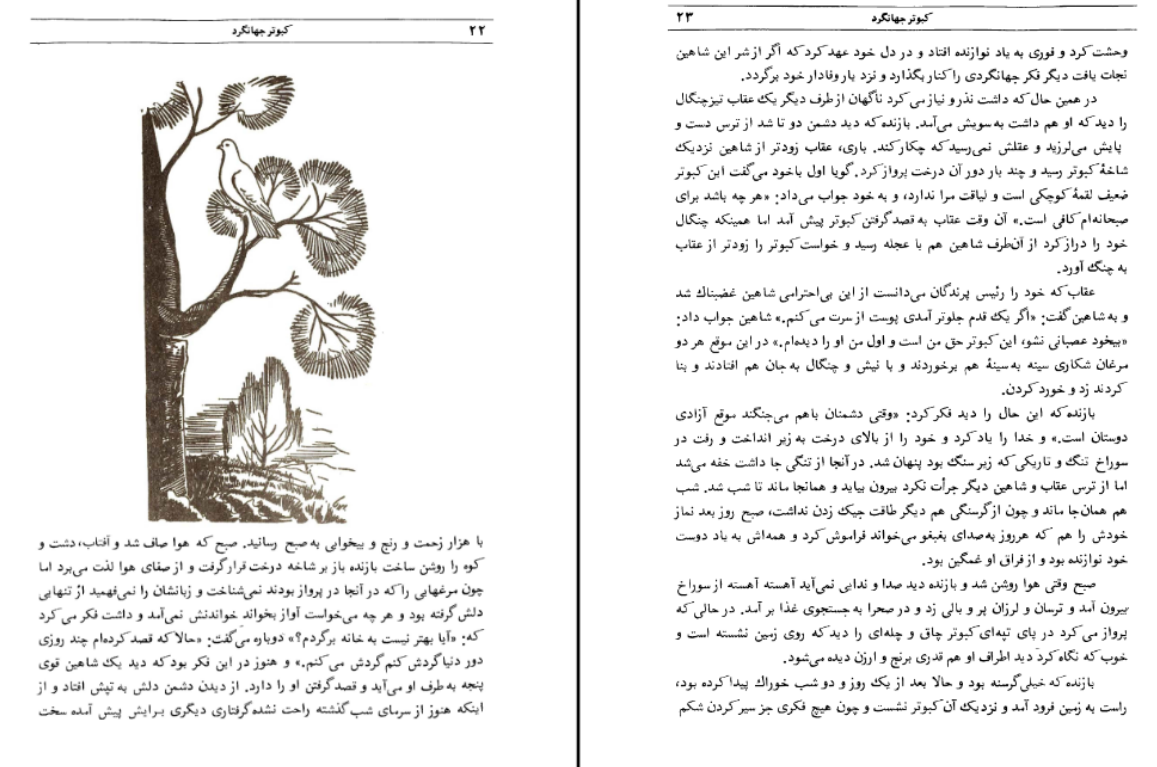 ۲۲
کبوتر جهانگرد
با هزار زحمت و رنج و بیخوابی به صبح رسانید. صبح که هوا صاف شد و آفتاب، دشت و
کوه را روشن ساخت بازنده باز بر شاخه درخت قرار گرفت و از صفای هوا لذت می‌برد اما
چون مرغهایی را که در آنجا در پرواز بودند نمی‌شناخت و زبانشان را نمی‌فهمید از تنهایی
دلش گرفته بود و هر چه می‌خواست آواز بخواند خواندنش نمی‌آمد و داشت فکر می‌کرد
که: «آیا بهتر نیست به خانه برگردم؟» دوباره می‌گفت: «حالا که قصد کرده‌ام چند روزی
دور دنیا گردش کنم گردش می‌کنم.» و هنوز در این فکر بود که دید یک شاهین قوی
پنجه به طرف او می‌آید و قصد گرفتن او را دارد. از دیدن دشمن دلش به تپش افتاد و از
اینکه هنوز از سرمای شب گذشته راحت نشده گرفتاری دیگری برایش پیش آمده سخت
۲۳
کبوتر جهانگرد
وحشت کرد و فوری به یاد نوازنده افتاد و در دل خود عهد کرد که اگر از شر این شاهین
نجات یافت دیگر فکر جهانگردی را کنار بگذارد و نزد یار وفادار خود برگردد.
در همین حال که داشت نذر و نیاز می‌کرد ناگهان از طرف دیگر یک عقاب تیزچنگال
را دید که او هم داشت به سویش می‌آمد. بازنده که دید دشمن دو تا شد از ترس دست و
پایش می‌لرزید و عقلش نمی‌رسید که چکار کند. باری، عقاب زودتر از شاهین نزدیک
شاخهٔ کبوتر رسید و چند بار دور آن درخت پرواز کرد. گویا اول باخود می‌گفت این کبوتر
ضعیف لقمهٔ کوچکی است و لیاقت مرا ندارد، و به خود جواب می‌داد: «هر چه باشد برای
صبحانه‌ام کافی است.» آن وقت عقاب به قصد گرفتن کبوتر پیش آمد اما همینکه چنگال
خود را دراز کرد از آن‌طرف شاهین هم با عجله رسید و خواست کبوتر را زودتر از عقاب
به چنگ آورد.
عقاب که خود را رئیس پرندگان می‌دانست از این بی‌احترامی شاهین غضبناک شد
و به شاهین گفت: «اگر یک قدم جلوتر آمدی پوست از سرت می‌کنم.» شاهین جواب داد:
«بیخود عصبانی نشو، این کبوتر حق من است و اول من او را دیده‌ام.» در این موقع هر دو
مرغان شکاری سینه به سینهٔ هم برخوردند و با نیش و چنگال به جان هم افتادند و بنا
کردند زد و خورد کردن.
بازنده که این حال را دید فکر کرد: «وقتی دشمنان باهم می‌جنگند موقع آزادی
دوستان است.» و خدا را یاد کرد و خود را از بالای درخت به زیر انداخت و رفت در
سوراخ تنگ و تاریکی که زیر سنگ بود پنهان شد. در آنجا از تنگی جا داشت خفه می‌شد
اما از ترس عقاب و شاهین دیگر جرأت نکرد بیرون بیاید و همانجا ماند تا شب شد. شب
هم همان‌جا ماند و چون از گرسنگی هم دیگر طاقت جیک زدن نداشت، صبح روز بعد نماز
خودش را هم که هرروز به‌صدای بغبغو می‌خواند فراموش کرد و همه‌اش به یاد دوست
خود نوازنده بود و از فراق او غمگین بود.
صبح وقتی هوا روشن شد و بازنده دید صدا و ندایی نمی‌آید آهسته آهسته از سوراخ
بیرون آمد و ترسان و لرزان پر و بالی زد و در صحرا به جستجوی غذا بر آمد. در حالی که
پرواز می‌کرد در پای تپه‌ای کبوتر چاق و چله‌ای را دید که روی زمین نشسته است و
خوب که نگاه کرد دید اطراف او هم قدری برنج و ارزن دیده می‌شود.
بازنده که خیلی گرسنه بود و حالا بعد از یک روز و دو شب خوراک پیدا کرده بود،
راست به زمین فرود آمد و نزدیک آن کبوتر نشست و چون هیچ فکری جز سیر کردن شکم